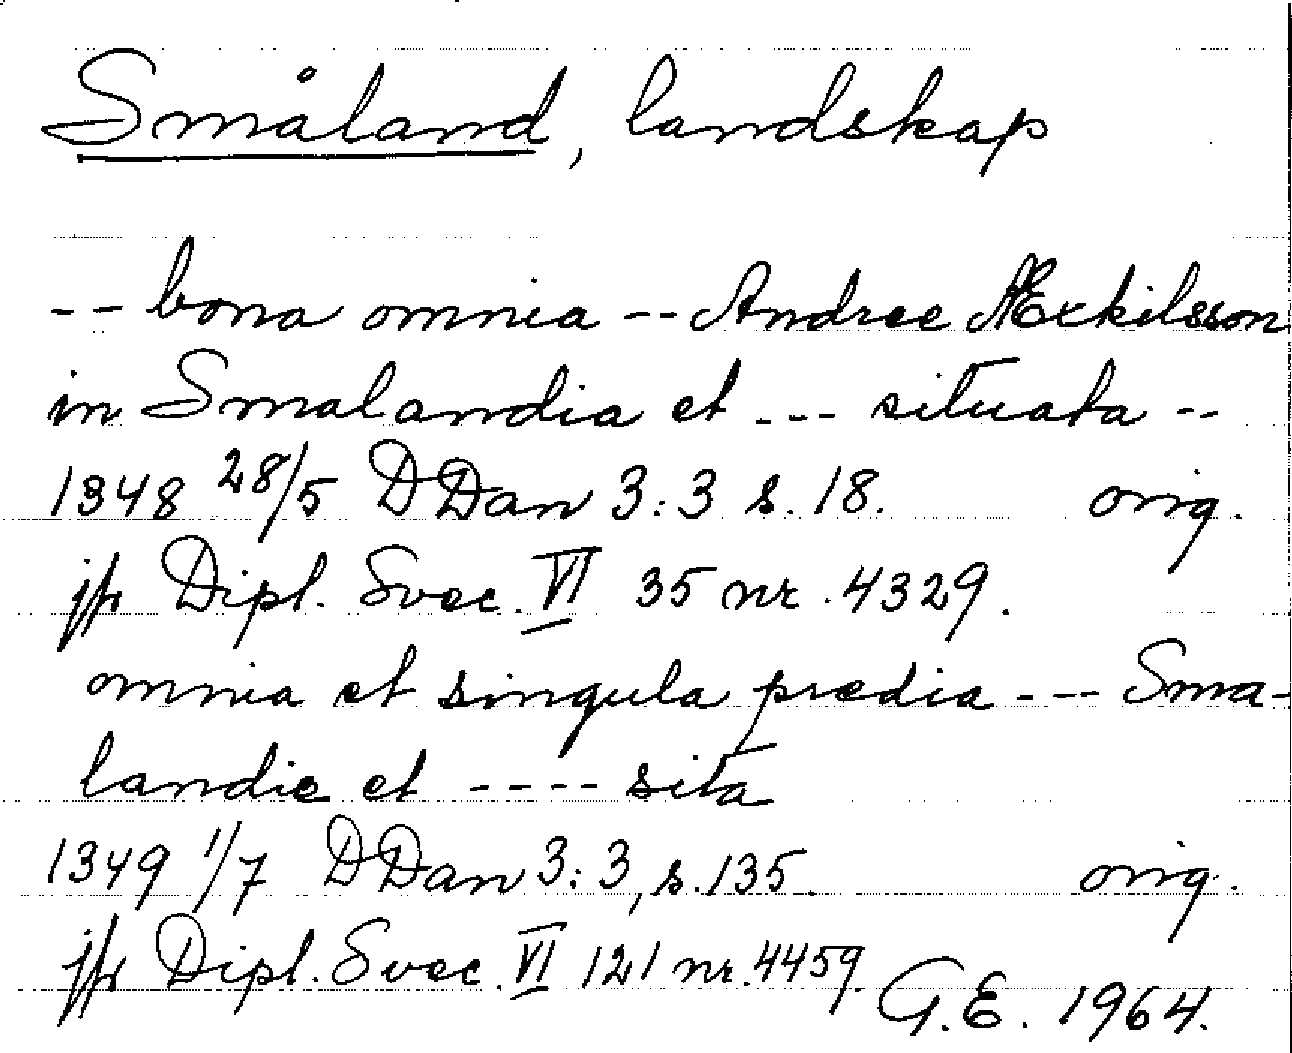 Småland, landskap
-- bona omnia -- Andree Æskilsson
in Smalandia et --- situata --
1348 28/5 DDan 3:3 s. 18. orig.
jfr Dipl. Svec. VI 35 nr. 4329.
omnia et singula predia --- Sma-
landie et ---- sita
1349 1/7 DDan 3:3, s. 135. orig.
jfr Dipl. Svec. VI 121 nr. 4459.
G.E. 1964.